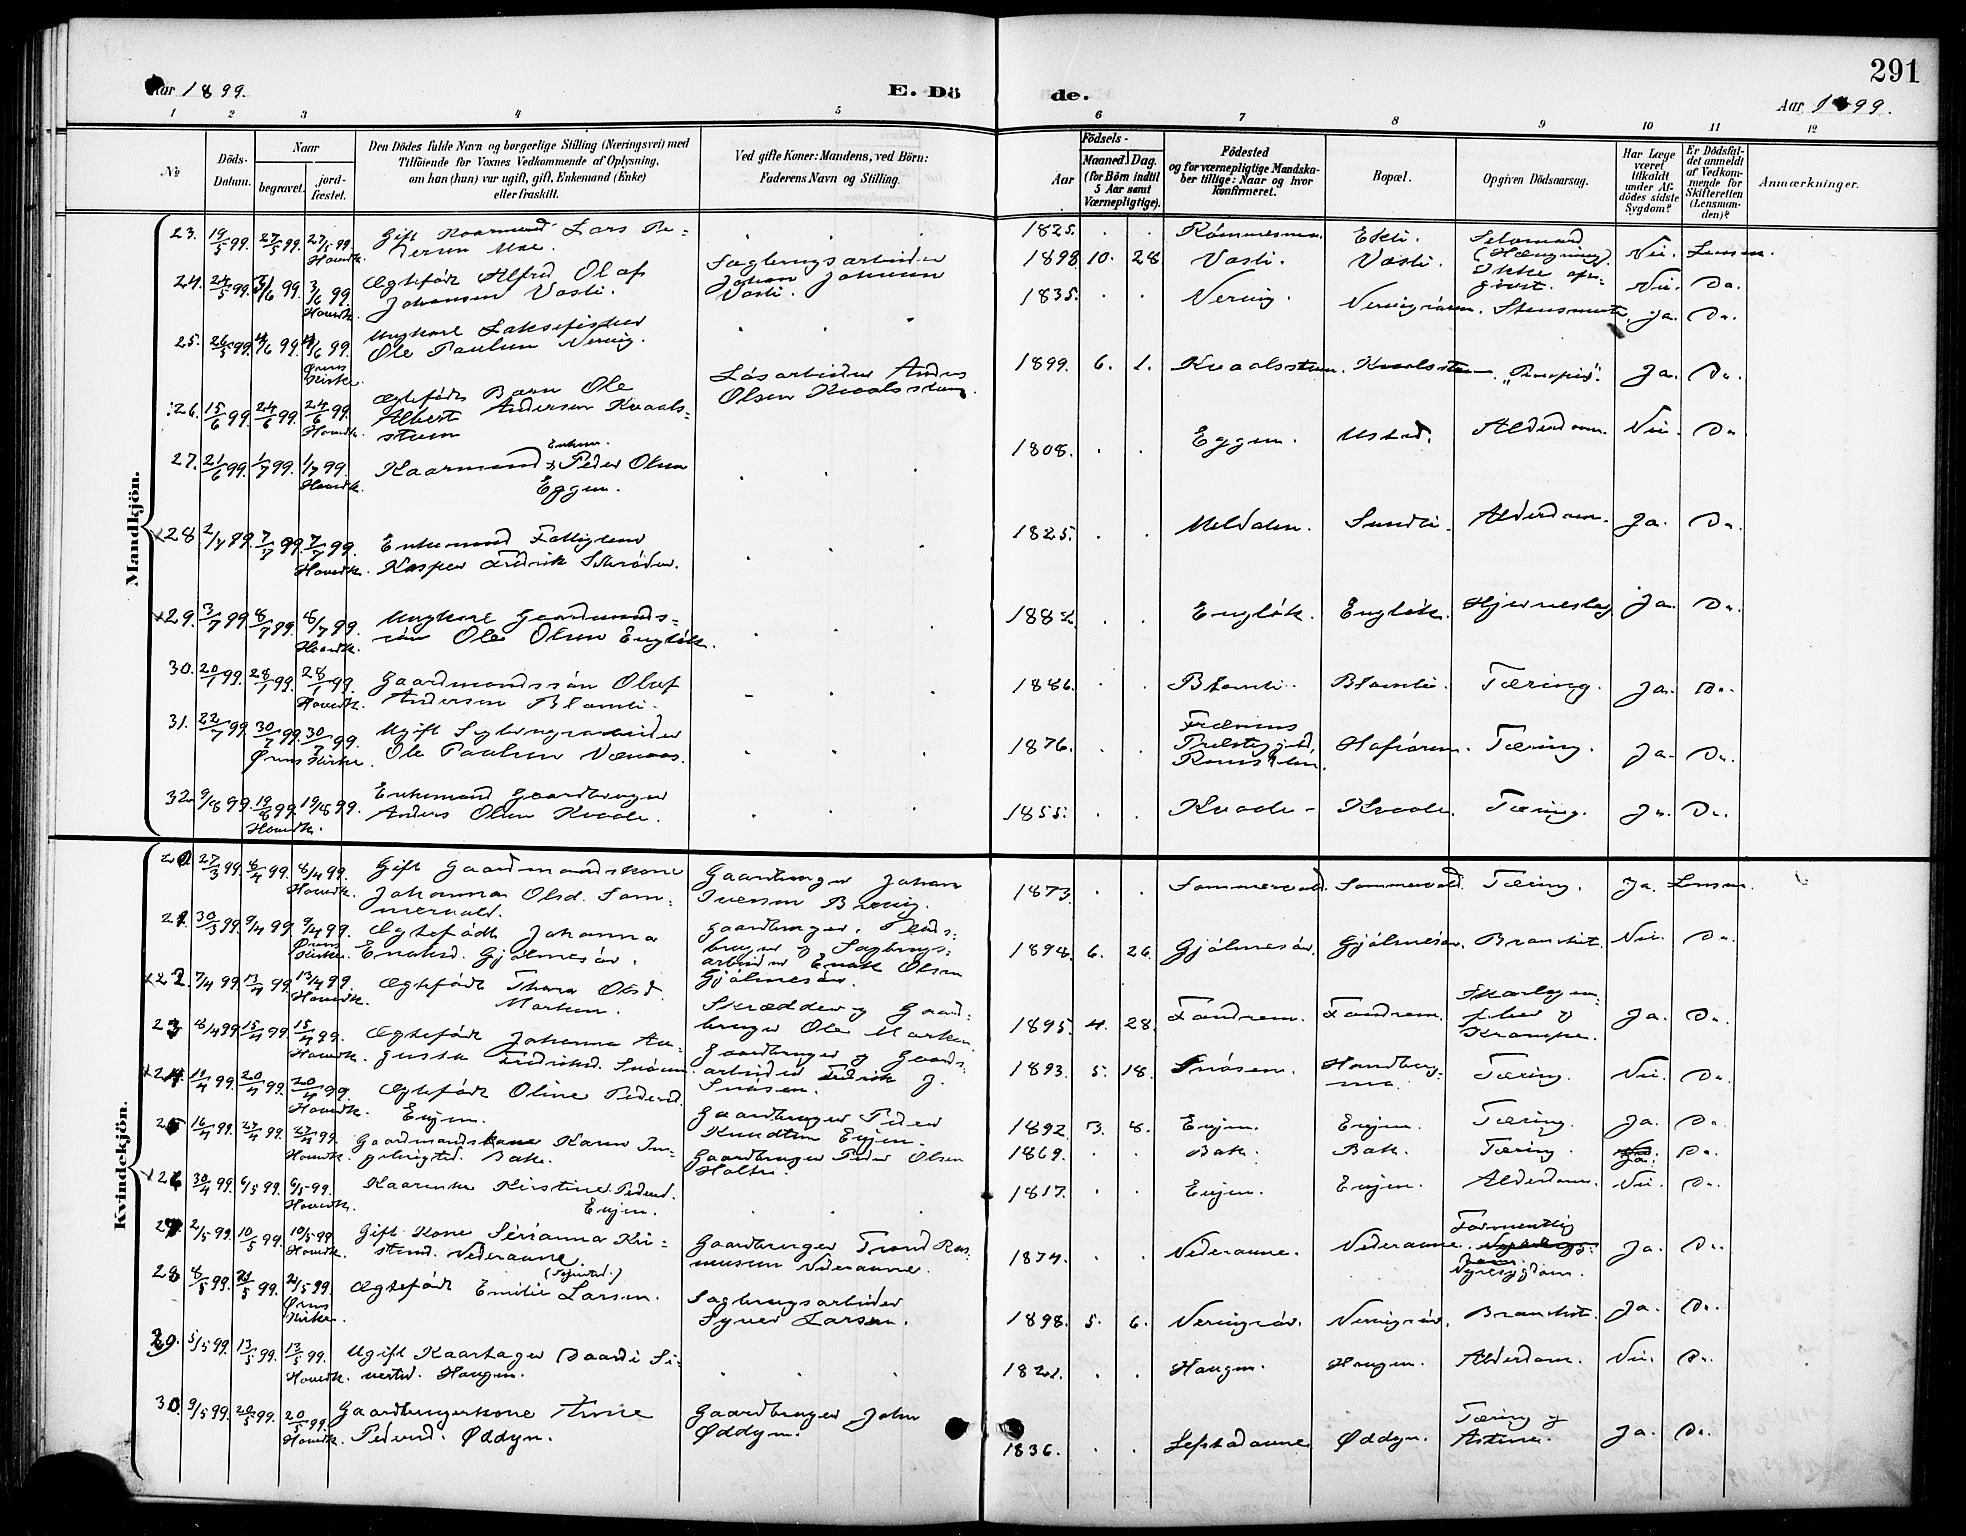 291
Aar 1899.
E. Dö de.
Aar 1899.
1 2 3 4 5 6 7 8 9 10 11 12
No.
Döds-Datum.
Naar
begravet.
jord-fæstet.
Den Dödes fulde Navn og borgerlige Stilling (Næringsvei) med
Tilföiende for Voxnes Vedkommende af Oplysning,
om han (hun) var ugift, gift, Enkemand (Enke)
eller fraskilt.
Ved gifte Koner: Mandens, ved Börn:
Faderens Navn og Stilling.
Födsels-
Aar
Maaned. Dag.
(for Börn indtil
5 Aar samt
Værnepligtige).
Födested
og for værnepligtige Mandska-
ber tillige: Naar og hvor
konfirmeret.
Bopæl.
Opgiven Dödsaarsag.
Har Læge
været
tilkaldt
under Af-
dödes sidste
Sygdom?
Er Dödsfal-
det anmeldt
af Vedkom-
mende for
Skifteretten
(Lensman-
den)?
Anmærkninger.
Mandkjön.
23. 19/5 99. 27/5 99. 27/5 99. Hovedk. Gift Kaarmand Lars Pe-
dersen Moe. 1825. Ekli. Selvmord (Hængning). Nei. Lensm.
24. 24/5 99. 3/6 99. 3/6 99. Hovedk. Ægtefödt Alfred Olaf
Johansen Vasli. Sagbrugsarbeider
Johan Johnsen
Vasli. 1898 10. 28 Vasli. Vasli. Ikke opgivet. Nei. Do.
25. 26/5 99. 4/6 99. 4/6 99. Ørens Kirke. Ungkarl Laksefisker
Ole Paulsen Nervig. 1835. Nervig. Ja. Do.
26. 15/6 99. 24/6 99. 24/6 99. Hovedk. Ægtefödt Barn Ole
Albert Andersen Kvaals-
strøm Lösarbeider Anders
Olsen 1899. 6. 1. Ja. Do.
27. 21/6 99. 1/7 99. 1/7 99. Hovedk. Kaarmand Enkem. Peder Olsen
Eggen. 1808. Eggen. Alderdom. Nei. Do.
28. 2/7 99. 7/7 99. 7/7 99. Hovedk. Enkemand Fattiglem
Kasper Fredrik Schrøder. 1825. Meldalen. Sundli. Alderdom. Ja. Do.
29. 3/7 99. 8/7 99. 8/7 99. Hovedk. Ungkarl Gaardmands-
sön Ole Olsen Engløk. 1882. Engløk. Engløk. Hjerneslag Ja. Do.
30. 20/7 99. 28/7 99. 28/7 99. Hovedk. Gaardmandssön Oluf
Andersen Blomli. 1886. Blomli. Blomli. Tæring. Ja. Do.
31. 22/7 99. 30/7 99. 30/7 99. Ørens Kirke. Ugift Sagbrugsarbeider
Ole Paulsen 1876. Frænens
Præstegjeld,
Romsdalen. Hafsøren. Tæring. Ja. Do.
32. 9/8 99. 19/8 99. 19/8 99. Hovedk. Enkemand Gaardbruger
Anders Olsen Kvaale. 1855. Kvaale. Kvaale. Tæring. Ja. Do.
Kvindekjön.
20. 27/3 99. 8/4 99. 8/4 99. Hovedk. Gift Gaardmandskone
Johanna Olsd. Som-
mervold. Gaardbruger Johan
Iversen 1873. Sommervold. Sommervold. Tæring. Ja. Lensm.
21. 30/3 99. 9/4 99. 9/4 99. Ørens Kirke. Ægtefödt Johanna
Enoksd. Gjølmesør. Gaardbruger, Plads-
bruger og Sagbrugs-
arbeider Enok Olsen
Gjølmesør. 1894. 6. 26. Gjølmesør. Gjølmesør. Bronkit. Nei. Do.
22. 7/4 99. 13/4 99. 13/4 99. Hovedk. Ægtefödt Thora Olsd.
Marken. Skrædder og Gaard-
bruger Ole Marken. 1895. 4. 28. Fandrem. Fandrem. Skarlagens-
feber og
Krampe. Ja. Do.
23. 8/4 99. 15/4 99. 15/4 99. Hovedk. Ægtefödt Johanna Au-
gusta Fredriksd. Snøsen. Gaardbruger og Gaards-
arbeider Fredrik J.
Snøsen. 1893. 5. 18. Snøsen. Tæring. Nei. Do.
24. 11/4 99. 20/4 99. 20/4 99. Hovedk. Ægtefödt Oline Pedersd.
Evjen. Gaardbruger Peder
Knudtsen Evjen. 1892. 3. 8. Evjen. Evjen. Tæring. Ja. Do.
25. 16/4 99. 27/4 99. 27/4 99. Hovedk. Gaardmandskone Karen In-
gebrigtsd. Bak. Gaardbruger Peder Olsen
Holte. 1869. Bak. Bak. Tæring. Ja. Do.
26. 30/4 99. 6/5 99. 6/5 99. Hovedk. Kaarenke Kirstine Pedersd.
Evjen. 1817. Evjen. Evjen. Alderdom. Nei. Do.
27. 2/5 99. 10/5 99. 10/5 99. Hovedk. Gift Kone Serianna Kri-
stensd. Nederaune. Gaardbruger Trond Ras-
musen Nederaune. 1874. Nederaune. Nederaune. Formentlig
Nyresygdom. Ja. Do.
28. 8/5 99. 21/5 99. 21/5 99. Ørens Kirke. Ægtefödt Emilie Larsen. Sagbrugsarbeider
Syver Larsen. 1898. 5. 6. Nervigsør. Nervigsør. Bronkit. Ja. Do.
29. 5/5 99. 13/5 99. 13/5 99. Hovedk. Ugift Kaartager Baardi Si-
vertsd. Haugen. 1821. Haugen. Haugen. Alderdom. Nei. Do.
30. 9/5 99. 20/5 99. 20/5 99. Hovedk. Gaardbrugerkone
Pedersd. Øddyn. Gaardbruger John
Øddyn. 1836. Øddyn. Tæring og
Astma. Ja. Do.